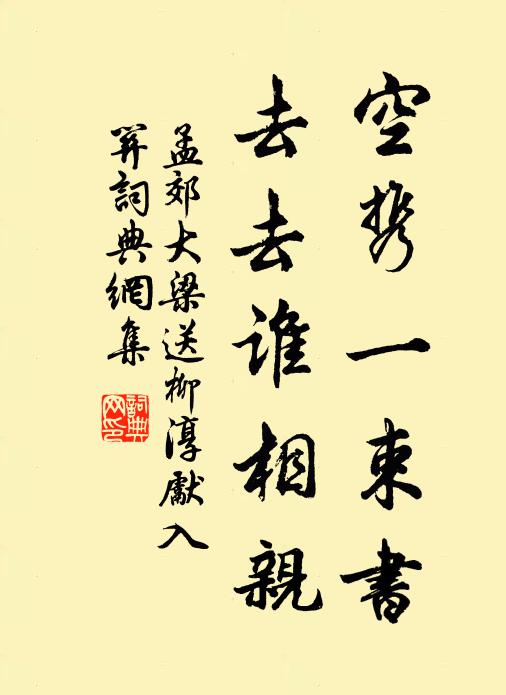 空携一束書
去去誰相親
孟郊大梁送柳淳獻入
关詞典網集
詞典
网印